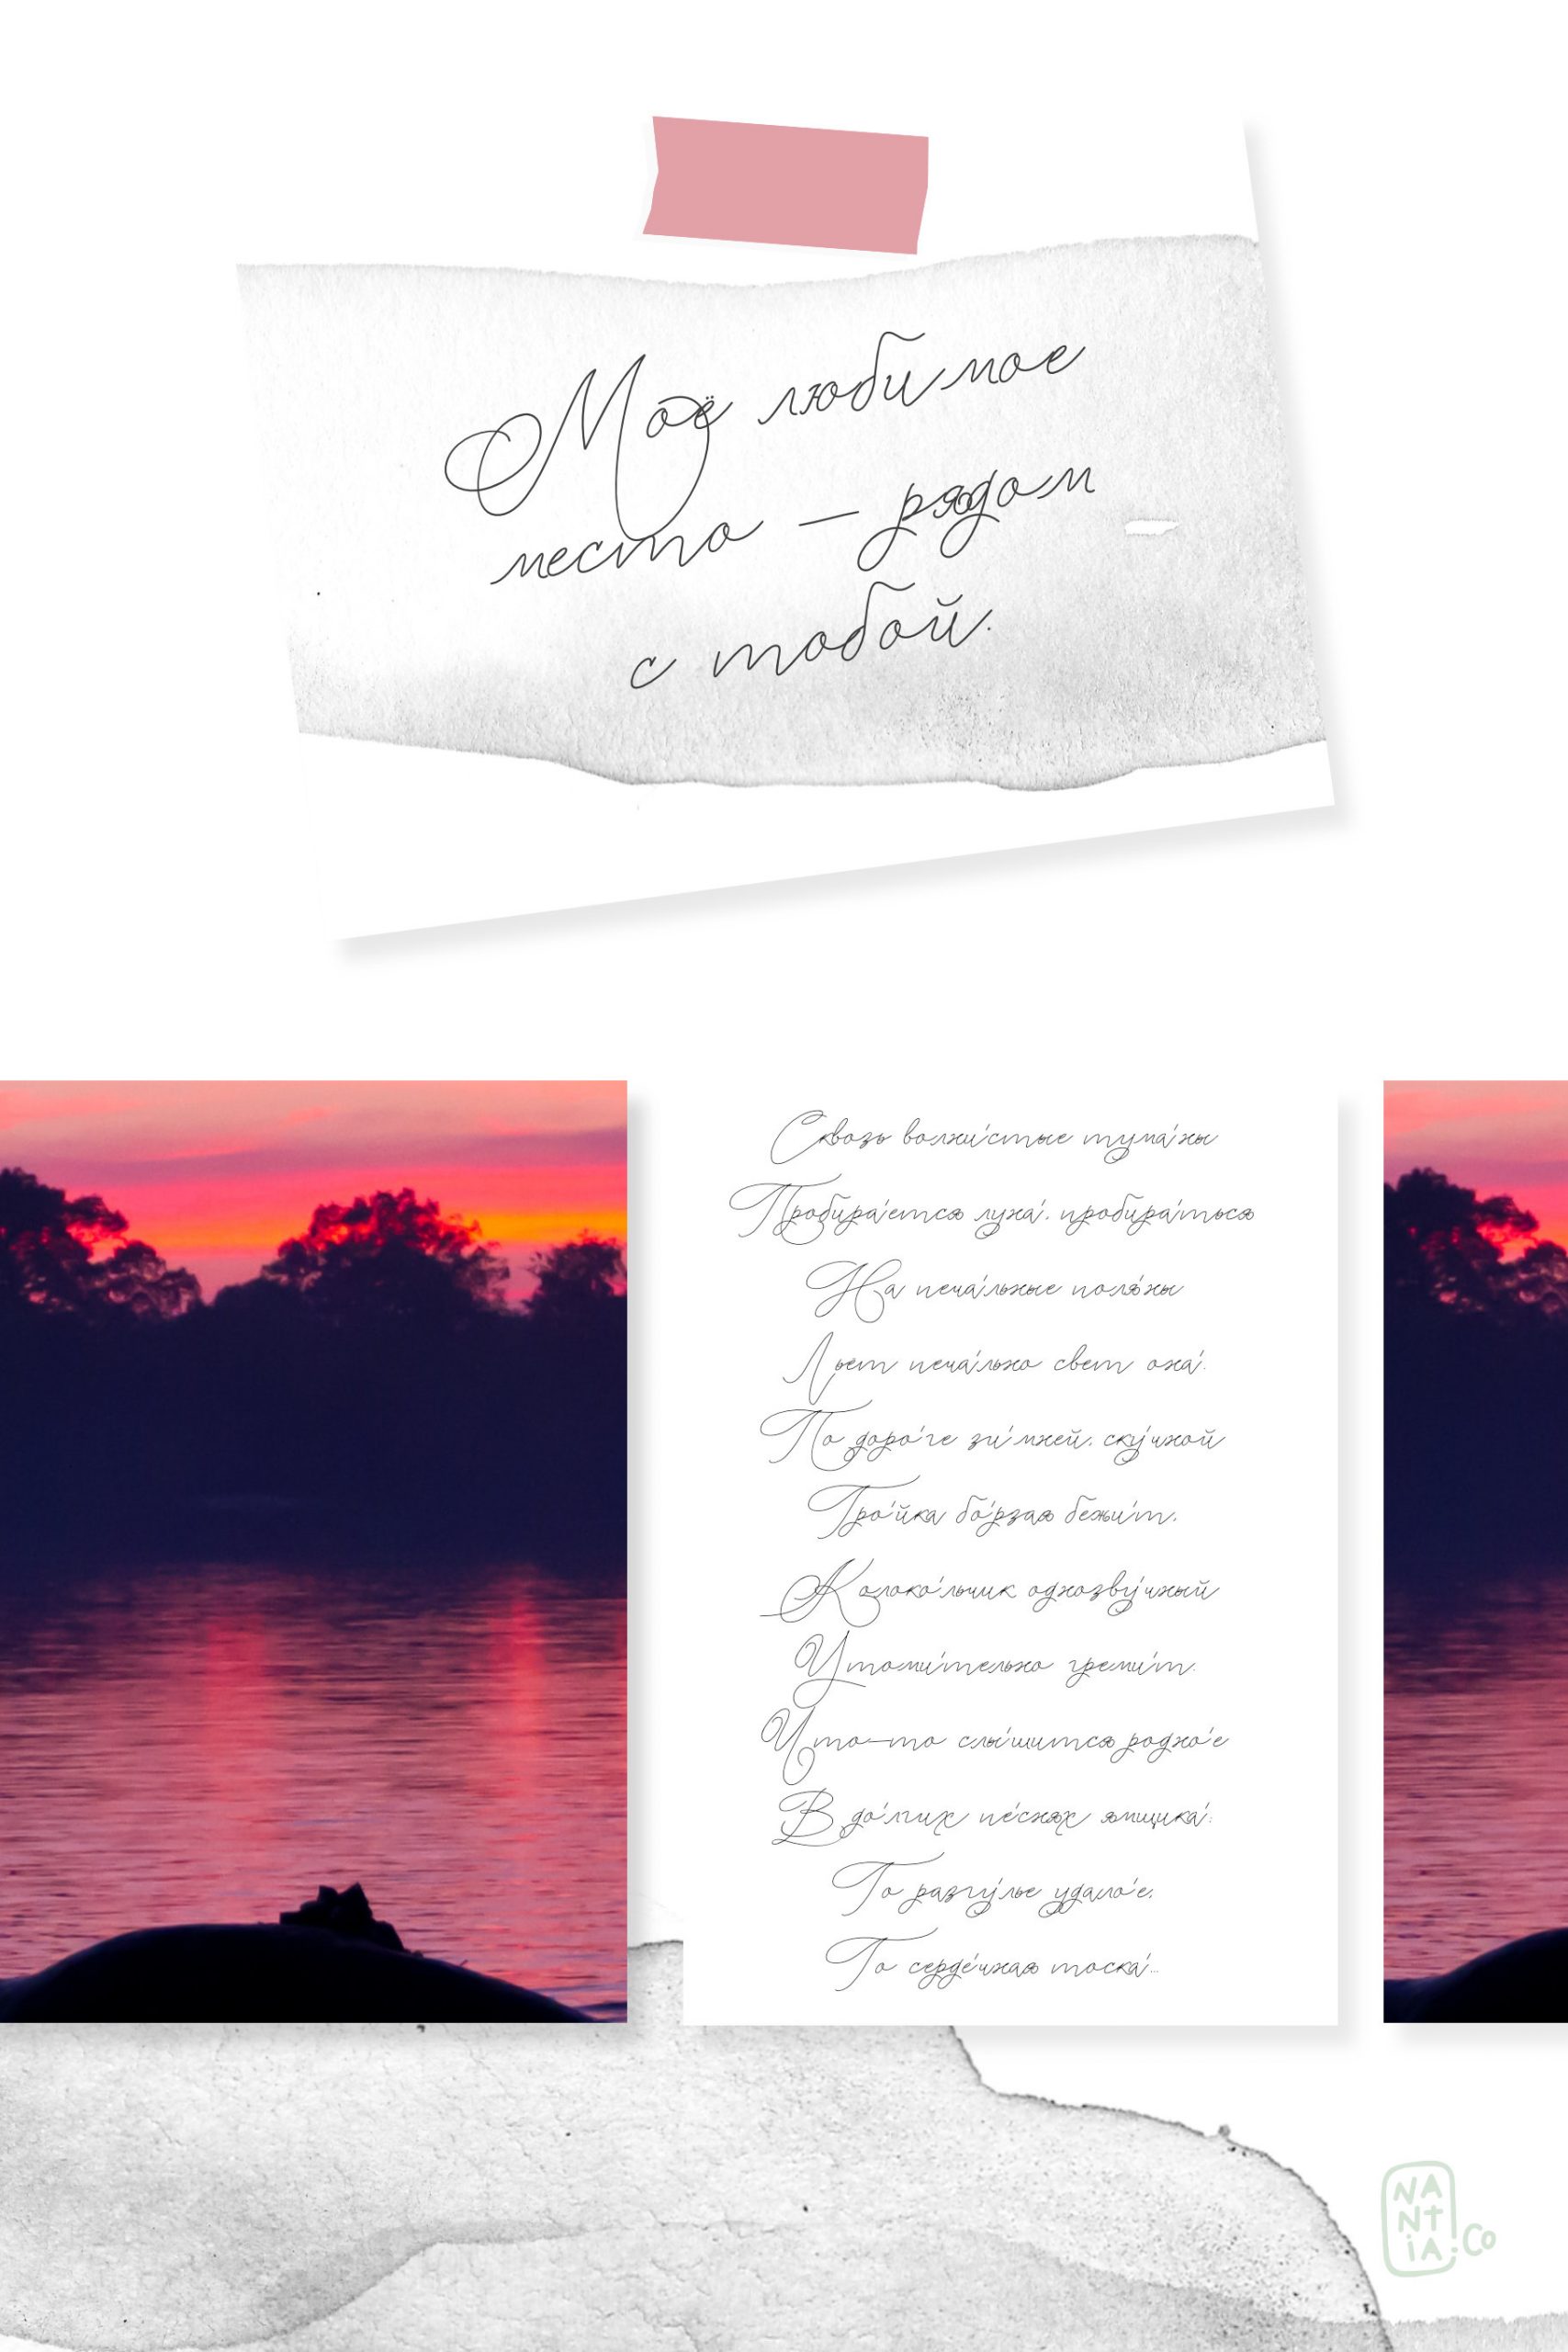 Моё любимое
место – рядом
с тобой.
Сквозь волни́стые тума́ны
Пробира́ется луна́, пробира́ться
На печа́льные поля́ны
Льет печа́льно свет она́.
По доро́ге зи́мней, ску́чной
Тро́йка бо́рзая бежи́т,
Колоко́льчик однозву́чный
Утоми́тельно греми́т.
Что-то слы́шится родно́е
В до́лгих пе́снях ямщика́:
То разгу́лье удало́е,
То серде́чная тоска́...
NANTIA.Co